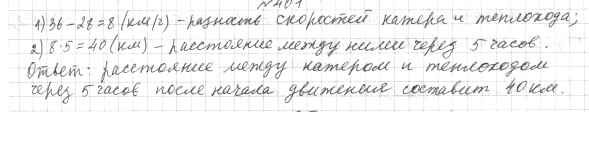 №401
1) 36-28=8 (км/г) - разность скоростей катера и теплохода;
2) 8·5=40 (км) - расстояние между ними через 5 часов.
Ответ: расстояние между катером и теплоходом
через 5 часов после начала движения составит 40 км.